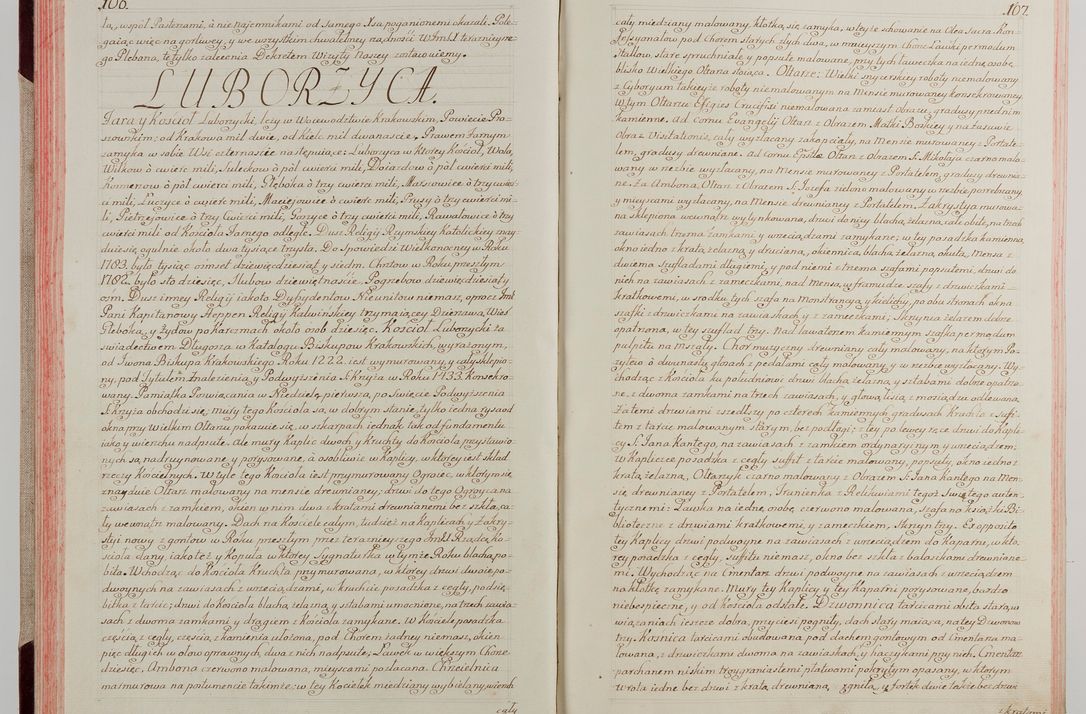 106.
ta, wspól Pasterzami, à nie najemnikami od Samego Xsa poganionemi okazali. Pole-
gaiąc więc na gorliwey y we wszystkim chwalebney rządności WJmci X terażnieysze-
go Plebana, te tylko zalecenia Dekretem Wizyty Naszey zostawuiemy.
LUBORZYCA.
Fara y Kościoł Luborzycki, leży w Woiewodztwie Krakowskim, Powiecie Pro-
szowskim; od Krakowa mil dwie, od Kielc mil dwanaście. Prawem Farnym
zamyka w sobie Wsi czternaście następuiące: Luborzyca w ktorey Kościoł, Wola,
Wilkow ò cwierc mili, Sulechow ò pół cwierci mili, Dojazdow ò pół cwierci mili,
Karmerow ò pół cwierci mili, Głęboka ò trzy cwierci mili, Marszowice ò trzy cwier-
ci mili, Łuczyce ò cwierc mili, Macieyowice ò cwierc mili, Prusy ò trzy cwierci mi-
li, Pietrzejowice ò trzy Cwierci mili, Goszyce ò trzy cwierci mili, Rawałowice ò trzy
cwierci mili od Kościoła Farnego odległe. Dusz Religij Rzymskiey Katolickiey znay-
duie się ogulnie około dwa tysiące trzysta. Do Spowiedzi Wielkonocney w Roku
1783. było tysiąc osmset dziewięćdziesiąt y siedm. Chrztow w Roku przeszłym
1782. było sto dziesięc, Slubow dziewiętnaście, Pogrzebow dziewięcdziesiąt y
ośm. Dusz inney Religij iakoto Dyssydentow Nieunitow niemasz, oprocz Jmci
Pani Kapitanowy Heppen Religij Kalwińskiey trzymaiącey Dzierżawą Wieś
Głęboką, y Żydow po Karczmach około osob dziesięc. Kościoł Luborzycki za
świadectwem Długosza w Katalogu Biskupow Krakowskich wyrażonym,
od Iwona Biskupa Krakowskiego Roku 1222. iest wymurowany, y cały sklepio-
ny, pod Tytułem Znalezienia y Podwyższenia S. Krzyża w Roku 1433. Konsekro-
wany. Pamiątka Poswiącania w Niedzielę pierwszą po Swięcie Podwyższenia
S. Krzyża obchodzi się, mury tego Kościoła są w dobrym stanie, tylko iedna rysa od
okna przy Wielkim Ołtarzu pokazuie się, w szkarpach iednak tak od fundamentu
iako y wierzchu nadpsute. Ale mury Kaplic dwoch, y Kruchty do Kościoła przystawio-
nych są nadruynowane y porysowane, à osobliwie w Kaplicy, w ktorey iest skład
rzeczy Kościelnych. W tyle tego Kościoła iest przymurowany Ogroiec, w ktorym się
znayduie Ołtarz malowany na mensie drewnianey; drzwi do tego Ogroyca na
zawiasach z zamkiem, okien w nim dwa z kratami drewnianemi bez szkła, ca-
ły wewnątrz malowany. Dach na Kościele całym, tudzież na Kaplicach y Zakry-
styi nowy z gontow w Roku przeszłym przez terażnieyszego Jmci X. Rządcę Ko-
ścioła dany iakoteż y Kopuła w ktorey Sygnaturka w tymże Roku blachą po-
bita. Wchodząc do Kościoła Kruchta przymurowana, w ktorey drzwi dwoie po-
dwoynych na zawiasach z wrzeciądzami, w kruchcie posadzka z cegły, podsie-
bitka z tarcic; drzwi do kościoła blachą żelazną y sztabami umocnione, na trzech zawia-
sach z dwoma zamkami y drągiem z kościoła zamykane. W Kościele posadzka
częścią z cegły, częścią z kamienia ułożona, pod Chorem żadney niemasz, okien
pięc długich w ołow oprawnych, dwa z nich nadpsute, Ławek w większym Chorze
dziesięc. Ambona czerwono malowana, mieyscami pozłacana. Chrzcielnica
marmurowa na postumencie takimże; w tey Kociołek miedziany wybielany, wierzch
cały

107.
cały miedziany malowany, kłotką się zamyka, w teyże schowanie na Olea Sacra. Kon-
fessyonałow pod Chorem starych złych dwa, w mnieyszym Chorze Ławki per modum
Stallow, stare spruchniałe y popsute malowane, przy tych ławeczka na iedną osobę
blisko Wielkiego Ołtarza stoiąca. Ołtarze: Wielki snycerskiey roboty niemalowany
z Cyborium takieyże roboty niemalowanym na Mensie murowaney konsekrowaney.
W tym Ołtarzu Effigies Crucifixi niemalowana zamiast obrazu, gradusy przed nim
kamienne. Ad cornu Evangelij Ołtarz z Obrazem Matki Boskiey y na zasuwie
Obraz Visitationis, cały wyzłacany zakopciały, na Mensie murowaney z Portate-
lem, gradusy drewniane. Ad cornu Epistolæ Ołtarz z Obrazem S. Mikołaja czarno malo-
wany w rzezbie wyzłacany, na Mensie murowaney z Portatelem, gradusy drewnia-
ne. Za Amboną Ołtarz z Obrazem S. Jozefa zielono malowany w rzezbie posrebrzany
y mieyscami wyzłacany, na Mensie drewnianey z Portatelem. Zakrystya murowa-
na sklepiona wewnątrz wytynkowana, drzwi do niey blachą żelazną całe obite, na trzech
zawiasach trzema Zamkami, y wrzeciądzami zamykane; w tey posadzka kamienna,
okno iedno z kratą żelazną y drucianą, okiennica blachą żelazną okuta, Mensa z
dwiema szufladami długiemi, y pod niemi z trzema szafami popsutemi, drzwi do
nich na zawiasach z zameczkami, nad Mensą w framudze szafy z drzwiczkami
kratkowemi, w srodku tych szafa na Monstrancyą y kielichy, po obu stronach okna
szafki z drzwiczkami na zawiasach y z zameczkami; Skrzynia żelazem dobrze
opatrzona, w tey szuflad trzy. Nad lawaterzem kamiennym szafka per modum
pulpitu na Mszały. Chor muzyczny drewniany cały malowany, na ktorym Po-
zytew ò dwunastu głosach z pedałami cały malowany, y w rzezbie wyzłacany. Wy-
chodząc z Kościoła ku południowi drzwi blachą żelazną, y sztabami dobrze opatrzo-
ne, z dwoma zamkami na trzech zawiasach, y głową lwią z mosiądzu odlewaną.
Za temi drzwiami zszedłszy po czterech kamiennych gradusach Kruchta z suffi-
tem z tarcic malowanym starym, bez podłogi; z tey po lewey ręce drzwi do Kapli-
cy S. Jana Kantego, na zawiasach z zamkiem ordynaryinym y wrzeciądzem;
w Kaplicze posadzka z cegły, suffit z tarcic malowany, popsuty, okno iedno z
kratą żelazną, Ołtarzyk czarno malowany z Obrazem S. Jana Kantego na Men-
sie drewnianey z Portatelem, Trunienka z Relikwiami tegoż Swiętego auten-
tycznemi; Ławka na iedną osobę, czerwono malowana, Szafa na książki Bi-
blioteczne z drzwiami kratkowemi, y zameczkiem, Skrzyń trzy. Ex opposito
tey Kaplicy drzwi podwoyne na zawiasach z wrzeciądzem do Kaparni, w kto-
rey posadzka z cegły, suffitu niemasz, okno bez szkła z balaskami drewniane-
mi. Wychodząc na Cmentarz drzwi podwoyne na zawiasach z wrzeciądzem
na kłotkę zamykane. Mury tey Kaplicy y tey Kaparni porysowane, bardzo
niebespieczne, y od kościoła odstałe. Dzwonnica tarcicami obita stara, w
wiązaniach ieszcze dobra, przyciesi pogniły, dach stary maiąca, na tey Dzwonow
trzy. Kosnica tarcicami obudowana pod dachem gontowym od Cmentarza ma-
lowana, z drzwiczkami dwoma na zawiasach, y haczykami przy nich. Cmentarz
parchanem niskim troygraniastemi płatwami pokrytym opasany, w ktorym
Wrota iedne bez drzwi z kratą drewnianą zgniłą, y fortek dwie także bez drzwi
z kratami